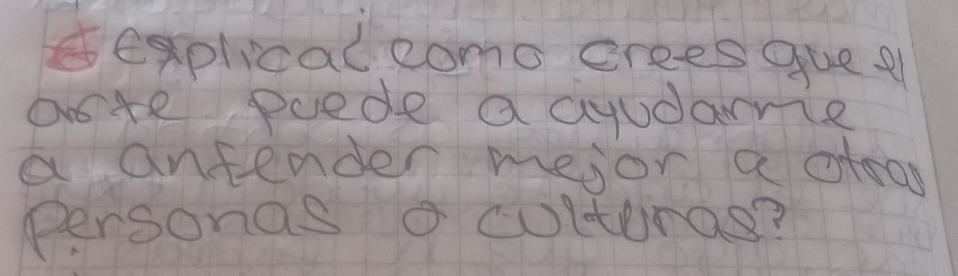 explical como crees que el
arte puede a ayudarme
a antender mejor a otras
personas o culturas?